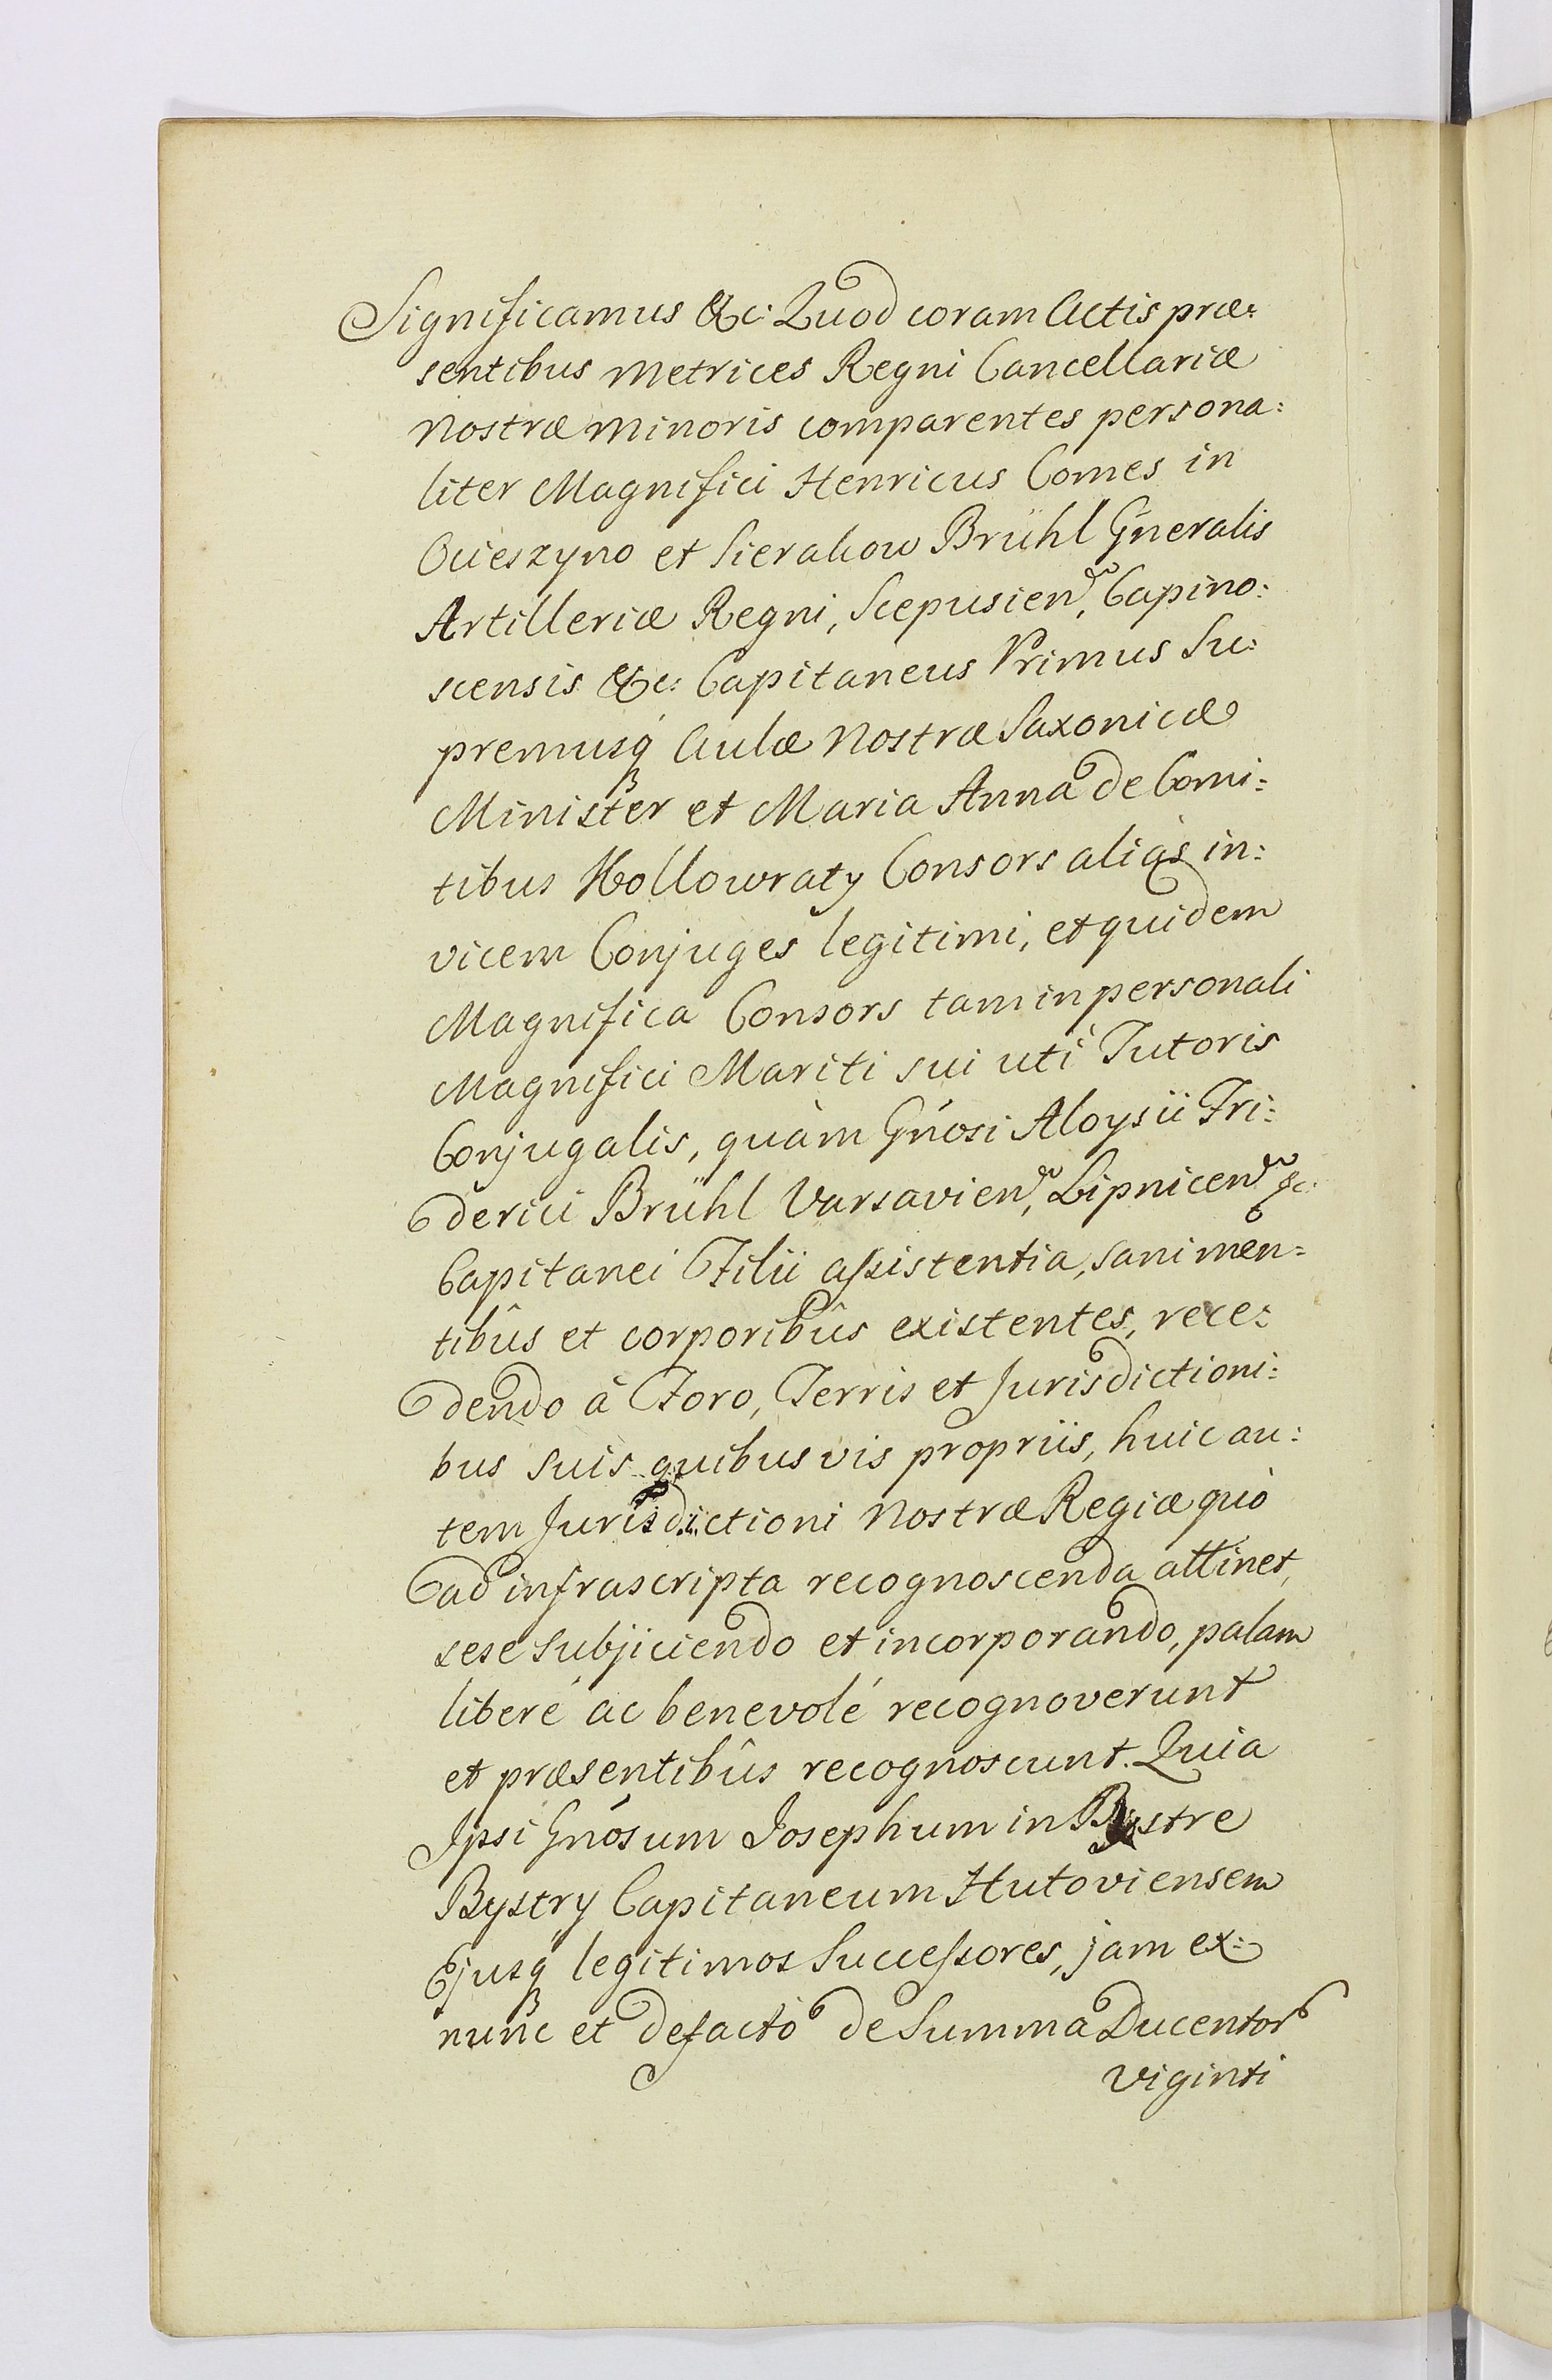 Significamus &c: Quod coram Actis præ:
sentibus Metrices Regni Cancellariæ
Nostræ Minoris comparentes persona:
liter Magnifici Henricus Comes in
Ocieszyno et Sierakow Brühl Gńeralis
Artilleriæ Regni, Scepusien, Capino:
scensis &c: Capitaneus Primus Su:
premusq́ Aulæ Nostræ Saxonicæ
Minister et Maria Anna de Comi:
tibus Kollowraty Consors aliàs in:
vicem Conjuges legitimi, et quidem
Magnifica Consors tam in personali
Magnifici Mariti sui uti Tutoris
Conjugalis, quàm Gńosi Aloysii Fri:
derici Brühl Varsavien, Lipnicen &c:
Capitanei Filii assistentia, sani men:
tibûs et corporibûs existentes, rece:
dendo à Foro, Terris et Jurisdictioni:
bus suis quibusvis propriis, huic au:
tem Jurisdictioni Nostræ Regiæ quò
ad infrascripta recognoscenda attinet,
sese subjiciendo et incorporando, palam
liberé ac benevolé recognoverunt
et præsentibûs recognoscunt. Quia
Ipsi Gńosum Josephum in Bystre
Bystry Capitaneum Hutoviensem
Ejusq́ legitimos Successores, jam ex:
nunc et defacto de Summa Ducentor
Viginti